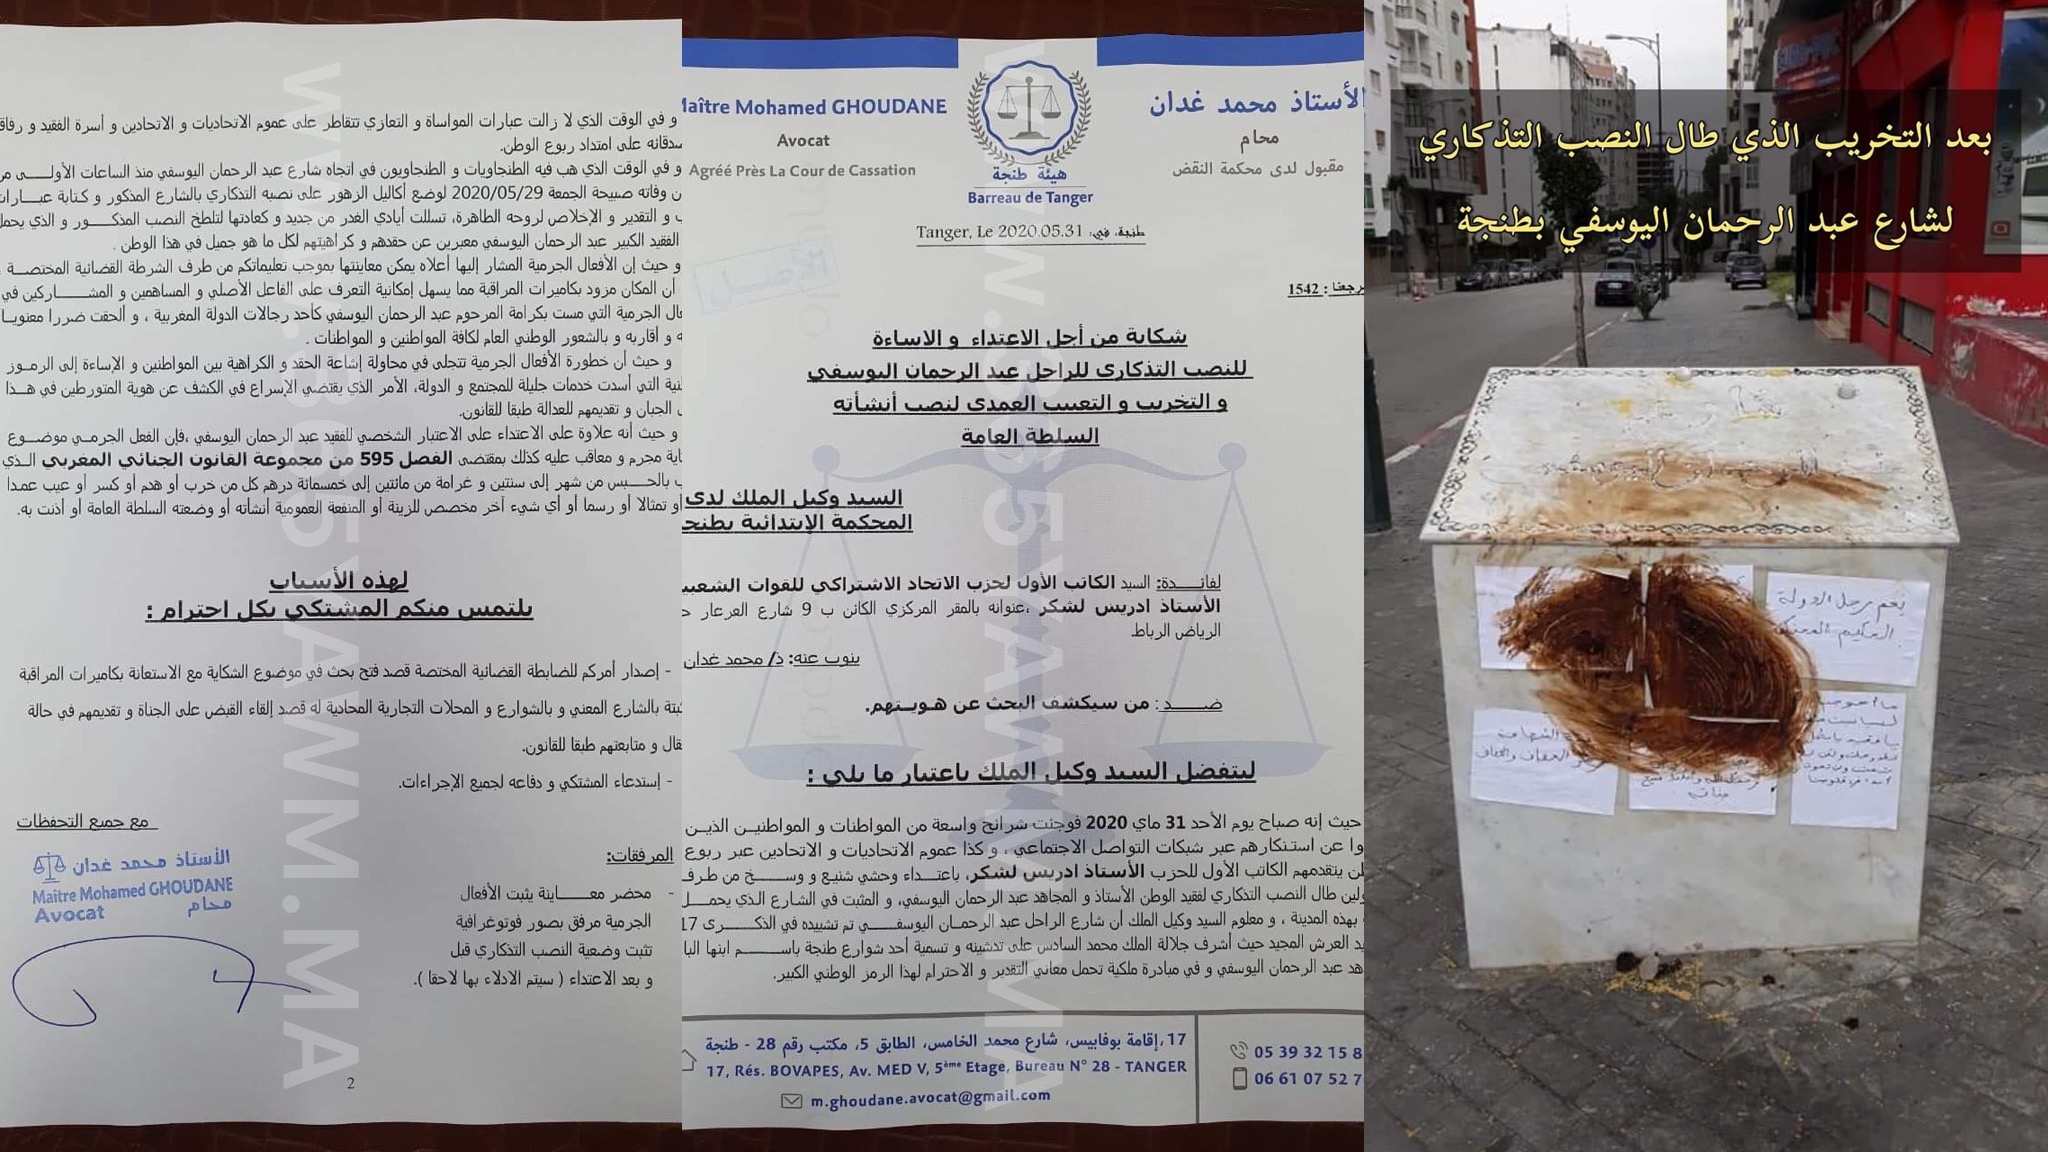 و في الوقت الذي لا زالت عبارات المواساة و التعازي تتقاطر على عموم الاتحاديات و الاتحادين و أسرة الفقيد و رفاق
صدقائه على امتداد ربوع الوطن.
و في الوقت الذي هب فيه الطنجاويات و الطنجاويون في اتجاه شارع عبد الرحمان اليوسفي منذ الساعات الأولى من
ن وفاته صبيحة الجمعة 2020/05/29 لوضع أكاليل الزهور على نصبه التذكاري بالشارع المذكور و كتابة عبارات
ب و التقدير و الإخلاص لروحه الطاهرة، تسللت أيادي الغدر من جديد و كعادتها لتلطخ النصب المذكور و الذي يحمل
الفقيد الكبير عبد الرحمان اليوسفي معبرين عن حقدهم و كراهيتهم لكل ما هو جميل في هذا الوطن .
و حيث إن الأفعال الجرمية المشار إليها أعلاه يمكن معاينتها بموجب تعليماتكم من طرف الشرطة القضائية المختصة
أن المكان مزود بكاميرات المراقبة مما يسهل إمكانية التعرف على الفاعل الأصلي و المساهمين و المشاركين في
عال الجرمية التي مست بكرامة المرحوم عبد الرحمان اليوسفي كأحد رجالات الدولة المغربية ، و ألحقت ضررا معنويا
ه و أقاربه و بالشعور الوطني العام لكافة المواطنين و المواطنات .
و حيث أن خطورة الأفعال الجرمية تتجلى في محاولة إشاعة الحقد و الكراهية بين المواطنين و الإساءة إلى الرموز
نية التي أسدت خدمات جليلة للمجتمع و الدولة، الأمر الذي يقتضي الإسراع في الكشف عن هوية المتورطين في هذا
ل الجبان و تقديمهم للعدالة طبقا للقانون.
و حيث أنه علاوة على الاعتداء على الاعتبار الشخصي للفقيد عبد الرحمان اليوسفي ،فإن الفعل الجرمي موضوع
اية مجرم و معاقب عليه كذلك بمقتضى الفصل 595 من مجموعة القانون الجنائي المغربي الذي
ب بالحبس من شهر إلى سنتين و غرامة من مائتين إلى خمسمائة درهم كل من خرب أو هدم أو كسر أو عيب عمدا
أو تمثالا أو رسما أو أي شيء آخر مخصص للزينة أو المنفعة العمومية أنشأته أو وضعته السلطة العامة أو أذنت به.
لهذه الأسباب
يلتمس منكم المشتكي بكل احترام :
- إصدار أمركم للضابطة القضائية المختصة قصد فتح بحث في موضوع الشكاية مع الاستعانة بكاميرات المراقبة
ثبتة بالشارع المعني و بالشوارع و المحلات التجارية المحادية له قصد إلقاء القبض على الجناة و تقديمهم في حالة
قال و متابعتهم طبقا للقانون.
- إستدعاء المشتكي و دفاعه لجميع الإجراءات.
مع جميع التحفظات
الأستاذ محمد غدان
Maître Mohamed GHOUDANE
Avocat محام
المرفقات:
- محضر معاينة يثبت الأفعال
الجرمية مرفق بصور فوتوغرافية
تثبت وضعية النصب التذكاري قبل
و بعد الاعتداء ( سيتم الادلاء بها لاحقا ).
2
Maître Mohamed GHOUDANE
Avocat
Agréé Près La Cour de Cassation
هيئة طنجة
Barreau de Tanger
الأستاذ محمد غدان
محام
مقبول لدى محكمة النقض
Tanger, Le 2020.05.31 :طنجة، في
الأصل
رجعنا : 1542
شكاية من أجل الاعتداء و الاساءة
للنصب التذكاري للراحل عبد الرحمان اليوسفي
و التخريب و التعييب العمدي لنصب أنشأته
السلطة العامة
السيد وكيل الملك لدى
المحكمة الإبتدائية بطنجة
لفائدة: السيد الكاتب الأول لحزب الاتحاد الاشتراكي للقوات الشعبي
الأستاذ ادريس لشكر ،عنوانه بالمقر المركزي الكائن ب 9 شارع العرعار ح
الرياض الرباط
ينوب عنه: ذ/ محمد غدان
ضد : من سيكشف البحث عن هويتهم.
ليتفضل السيد وكيل الملك باعتبار ما يلي :
حيث إنه صباح يوم الأحد 31 ماي 2020 فوجئت شرائح واسعة من المواطنات و المواطنين الذين
وا عن استنكارهم عبر شبكات التواصل الاجتماعي ، و كذا عموم الاتحاديات و الاتحادين عبر ربوع
طن يتقدمهم الكاتب الأول للحزب الأستاذ ادريس لشكر، باعتداء وحشي شنيع و وسخ من طرف
ولين طال النصب التذكاري لفقيد الوطن الأستاذ و المجاهد عبد الرحمان اليوسفي، و المثبت في الشارع الذي يحمل
بهذه المدينة ، و معلوم السيد وكيل الملك أن شارع الراحل عبد الرحمان اليوسفي تم تشييده في الذكرى 17
يد العرش المجيد حيث أشرف جلالة الملك محمد السادس على تدشينه و تسمية أحد شوارع طنجة باسم ابنها البا
هد عبد الرحمان اليوسفي و في مبادرة ملكية تحمل معاني التقدير و الاحترام لهذا الرمز الوطني الكبير.
17 ،إقامة بوفابيس، شارع محمد الخامس، الطابق 5، مكتب رقم 28 - طنجة
17, Rés. BOVAPES, Av. MED V, 5ème Etage, Bureau N° 28 - TANGER
m.ghoudane.avocat@gmail.com
05 39 32 15 8
06 61 07 52 7
WWW.365YAWM.MA
WWW.365YAWM.MA
بعد التخريب الذي طال النصب التذكاري
لشارع عبد الرحمان اليوسفي بطنجة
شارع
عبد الرحمان اليوسفي
نعم رجل الدولة
الحكيم